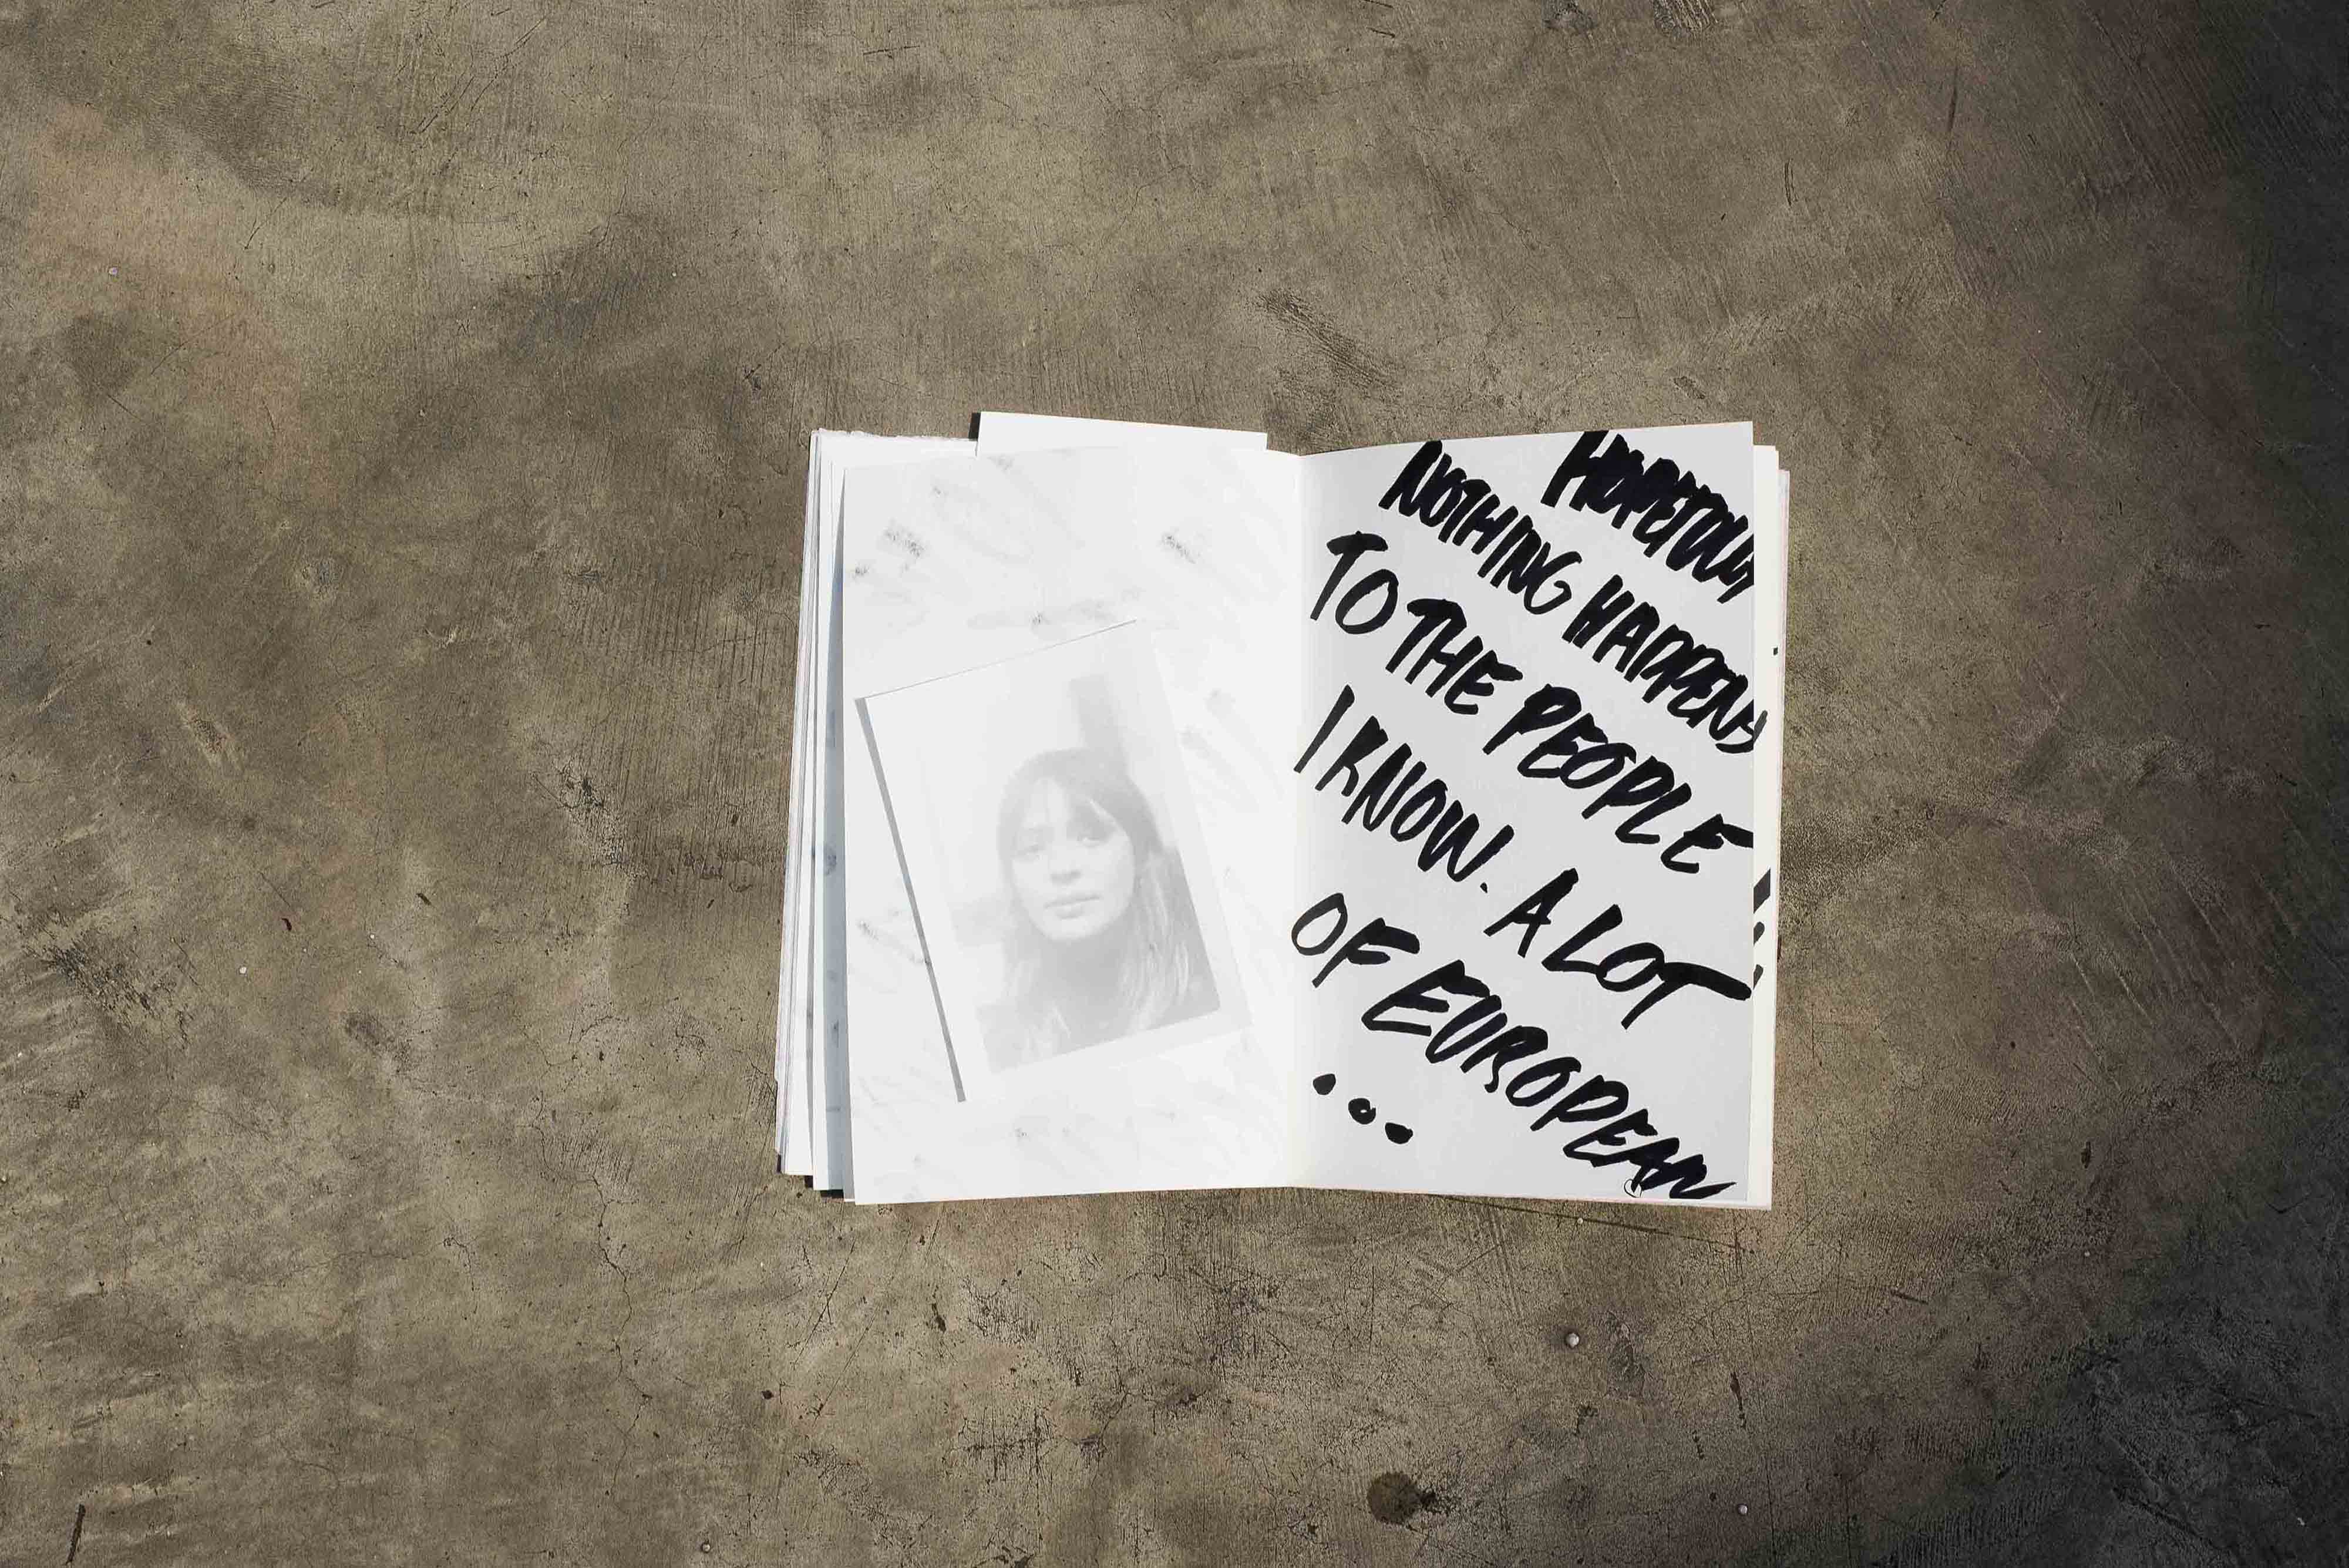 HOPEFULLY
NOTHING HAPPENS
TO THE PEOPLE
I KNOW. A LOT
OF EUROPEAN
...